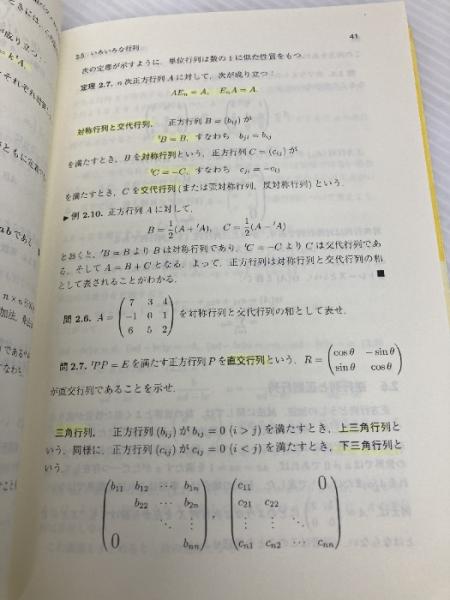 2.5 いろいろな行列 41
次の定理が示すように，単位行列は数の 1 に似た性質をもつ．
定理 2.7. n 次正方行列 A に対して，次が成り立つ：
AEn = A, EnA = A.
対称行列と交代行列． 正方行列 B = (bij) が
ᵗB = B, すなわち bji = bij
を満たすとき，B を対称行列という．正方行列 C = (cij) が
ᵗC = −C, すなわち cji = −cij
を満たすとき，C を交代行列 (または歪対称行列，反対称行列) という．
▶例 2.10. 正方行列 A に対して，
B = 1/2(A + ᵗA), C = 1/2(A − ᵗA)
とおくと，ᵗB = B より B は対称行列であり，ᵗC = −C より C は交代行列であ
る．そして A = B + C となる．よって，正方行列は対称行列と交代行列の和
として表されることがわかる． ■
問 2.6. A = (7 3 4
−1 0 1
6 5 2) を対称行列と交代行列の和として表せ．
問 2.7. ᵗPP = E を満たす正方行列 P を直交行列という．R = (cos θ −sin θ
sin θ cos θ)
が直交行列であることを示せ．
三角行列． 正方行列 (bij) が bij = 0 (i > j) を満たすとき，上三角行列と
いう．同様に，正方行列 (cij) が cij = 0 (i < j) を満たすとき，下三角行列と
いう．
(b11 b12 ⋯ b1n) (c11 0)
b22 ⋯ b2n c21 c22
⋱ ⋮ ⋮ ⋮ ⋱
0 bnn cn1 cn2 ⋯ cnn